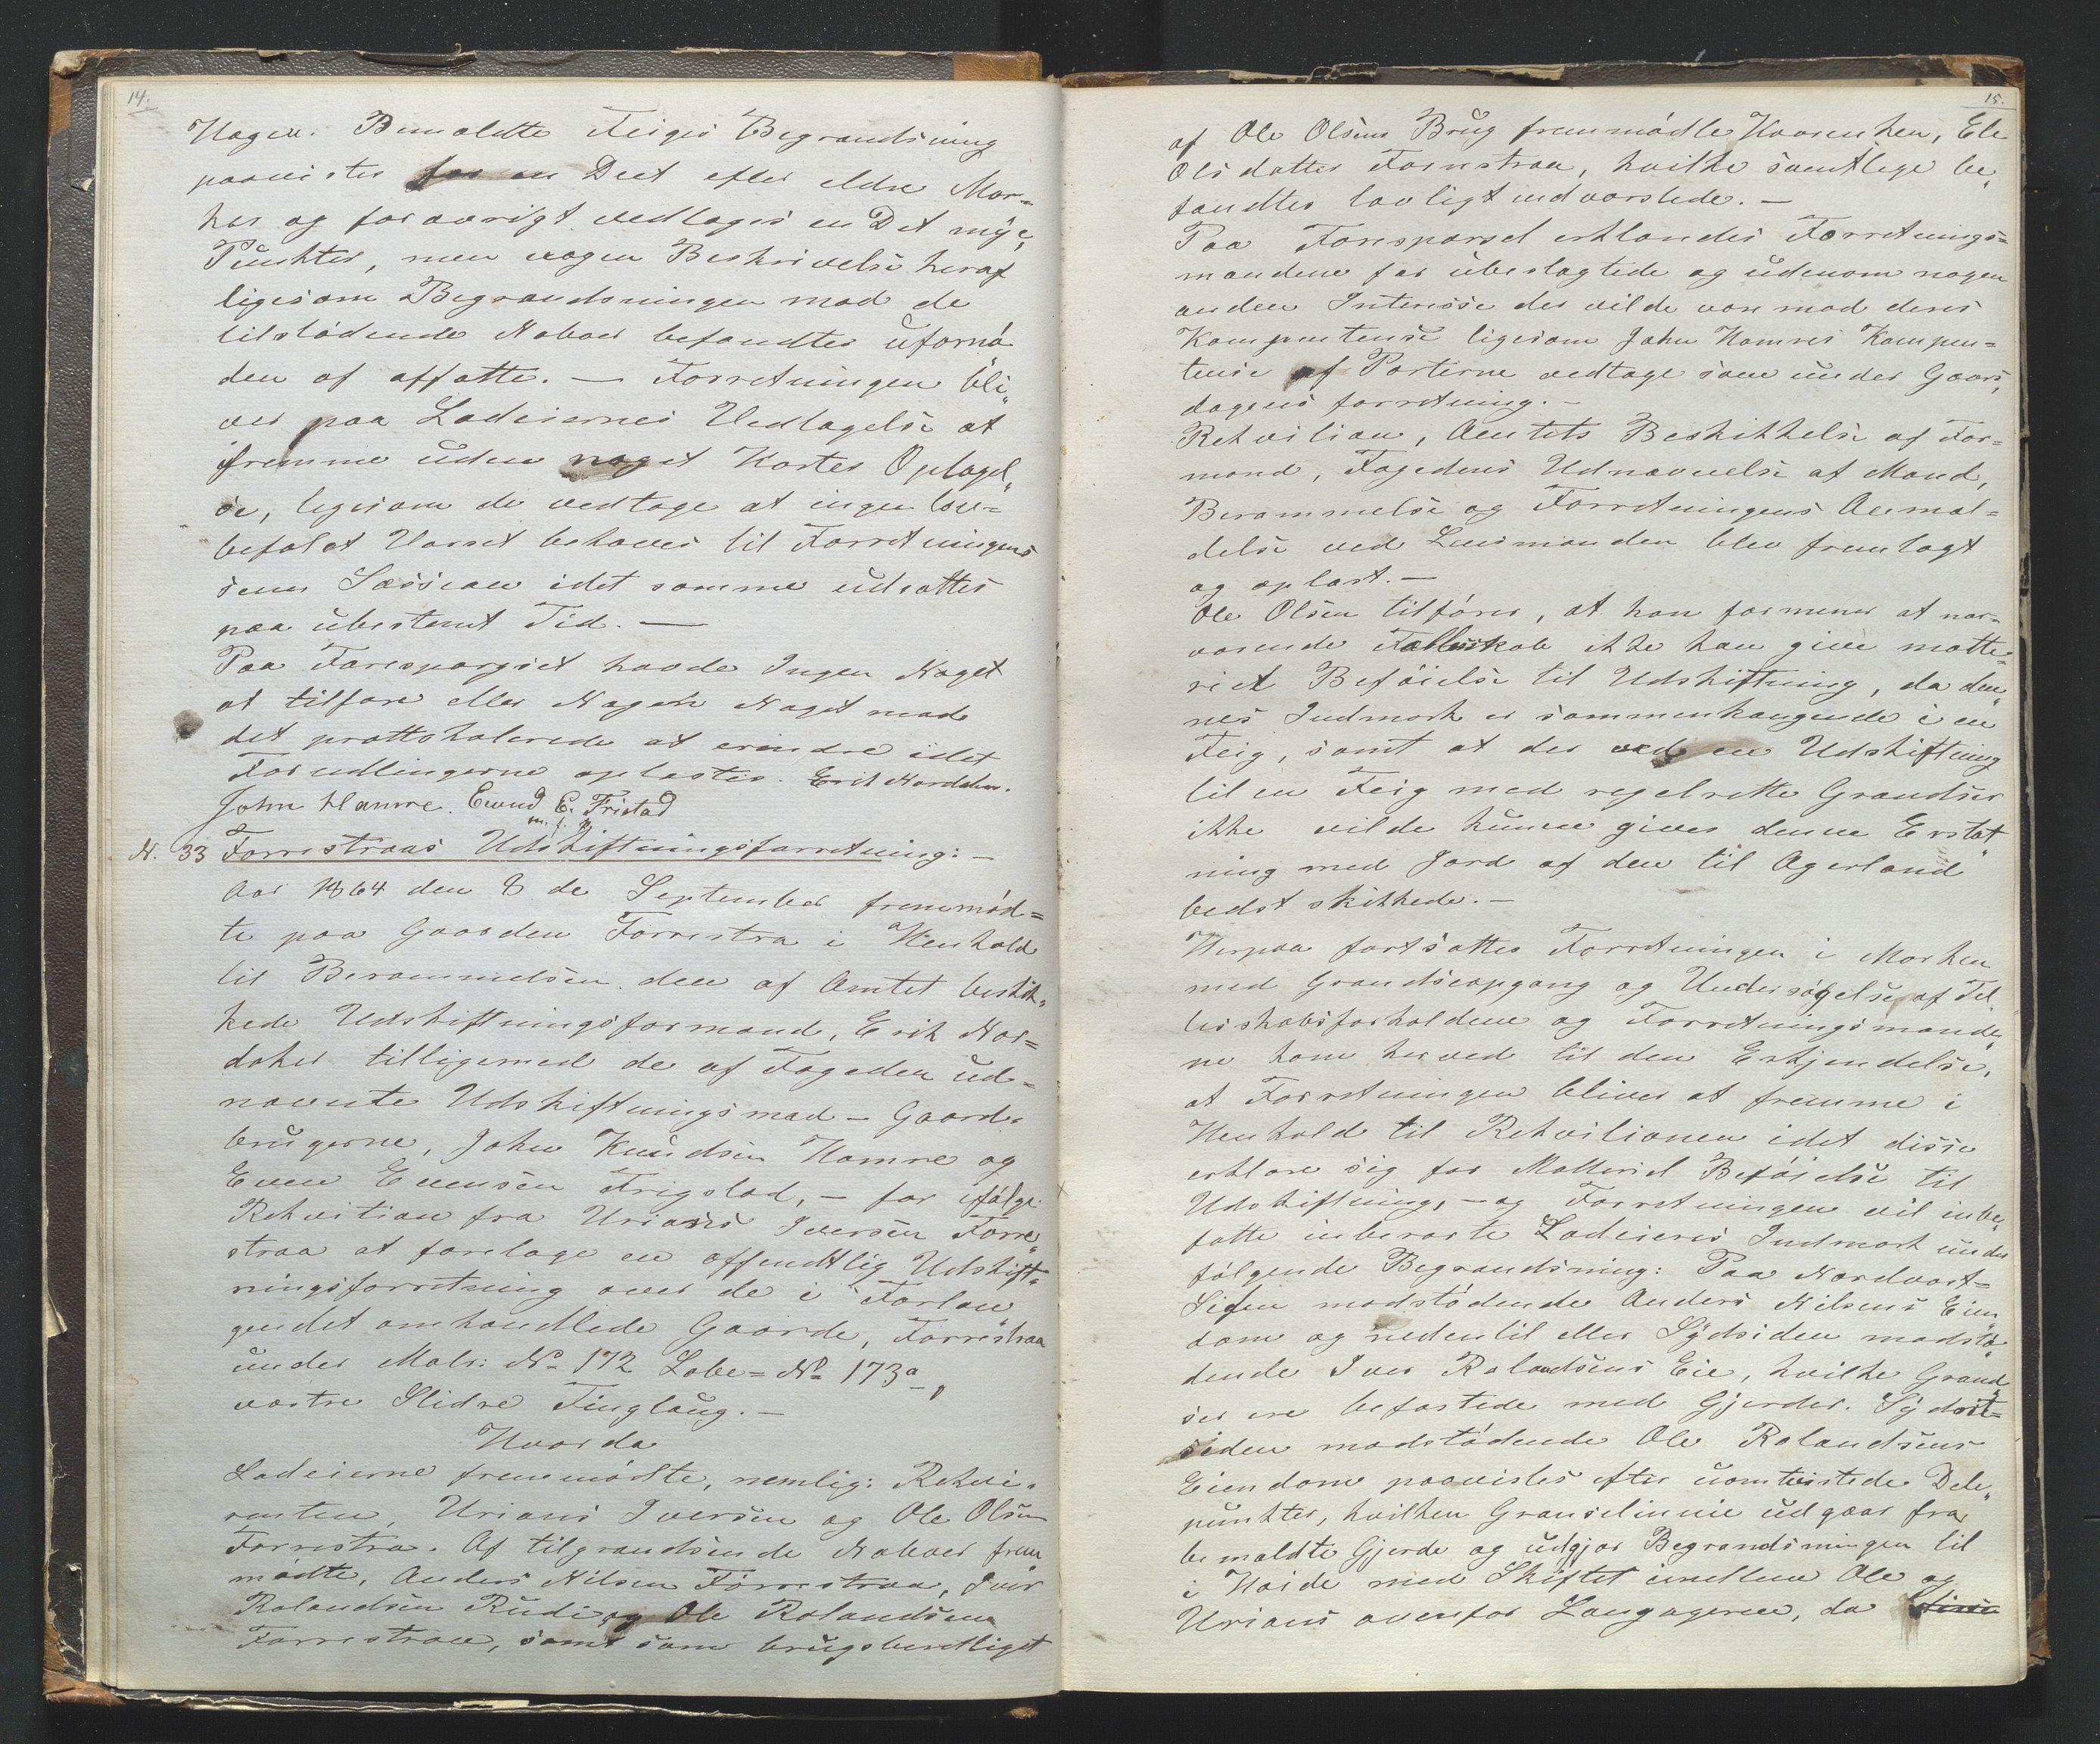 14.
Hagen. Bemældte Teiges Begrændsning
paavistes for en Deel efter eldre Mær=
ker og for øvrigt vedtages en Del nye
Punkter, men nogen Beskrivelse heraf
ligesom Begrændsningen mod de
tilstødende Naboer befandtes ufornø
den at affatte. — Forretningen bli„
ver paa Lodeiernes Vedtagelse at
fremme uden noget Kartes Optagel„
se, ligesom de vedtage at ingen lov=
befalet Varsel behøves til Forretningens
senere Session idet samme udsattes
paa ubestemt Tid. —
Paa Forespørgsel havde Ingen Noget
at tilføre eller Nogen Noget mod
det prottokolerede at erindre idet
Forhandlingerne oplæstes. Erik Nordaker.
John Hamre. Evend E. Fristad
m. f. P.
N. 33 Forrestraas Udskiftningsforretning: —
Aar 1864 den 8 de September fremmød=
te paa Gaarden Forrestra i Henhold
til Berammelsen den af Amtet beskik=
kede Udskiftningsformand, Erik Nor=
daker tilligemed de af Fogeden ud=
nævnte Udskiftningsmænd – Gaard=
brugerne, John Knudsen Hamre og
Even Evensen Frigstad, – for ifølge
Rekvisition fra Urians Iversen Forre„
straa at foretage en offendtlig Udskift=
ningsforretning over de i Forlan„
gendet omhandlede Gaarde, Forrestraa
under Matr: No 172 Løbe= No 173a,
vestre Slidre Tinglaug. —
Hvorda
Lodeierne fremmødte, nemlig: Rekvi=
renten, Urians Iversen og Ole Olsen
Forrestra. Af tilgrændsende Naboer frem
mødte, Anders Nilsen Forrestraa, Iver
Rolandsen Rudi og Ole Rolandsen
Forrestraa, samt som brugsberettiget
15.
af Ole Olsens Brug fremmødte Kaarenken, Eli
Olsdatter Forrestraa, hvilke samtlige be„
fandtes lovligt indvarslede. —
Paa Forespørsel erklærdes Forretnings=
mændene for ubeslægtede og udenom nogen
anden Interesse der vilde være mod deres
Kompentense ligesom John Hamres Kompen=
tense af Parterne vedtage som under Gaars„
dagens forretning. —
Rekvisition, Amtets Beskikkelse af For=
mand, Fogedens Udnævnelse af Mænd,
Berammelse og Forretningens Anmel=
delse ved Lensmanden blev fremlagt
og oplæst. —
Ole Olsen tilfører, at han formener at nær=
værende Fælleskab ikke kan give matte=
riel Beføielse til Udskiftning, da den„
nes Indmark er sammenhængende i en
Teig, samt at der ved en Udskiftning
til en Teig med regelrette Grændser
ikke vilde kunne gives denne Erstat
ning med Jord af den til Agerland
bedst skikkede. —
Herpaa fortsattes Forretningen i Marken
med Grændseopgang og Undersøgelse af Fel
lesskabsforholdene og Forretningsmænde„
ne kom herved til den Erkjendelse,
at Forretningen bliver at fremme i
Henhold til Rekvisitionen idet disse
erklære sig for Matteriel Beføielse til
Udskiftning, – og Forretningen vil inbe„
fatte inberørte Lodeieres Indmark under
følgende Begrændsning: Paa Nordvest=
Siden modstødende Anders Nilsens Eien
dom og nedentil eller Sydsiden modstø„
dende Iver Rolandsens Eie, hvilke Grænd„
ser ere befæstede med Gjerder. Sydost=
siden modstødende Ole Rolandsens
Eiendom paavistes efter uomtvistede Dele„
punkter, hvilken Grænselinnie udgaar fra
bemældte Gjerde og udgjør Begrændsningen til
i Høide med Skiftet imellem Ole og
Urians ovenfor Langageren, da